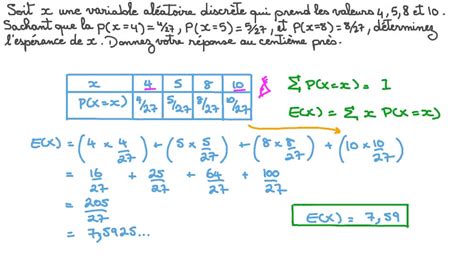 Soit x une variable aléatoire discrète qui prend les valeurs 4, 5, 8 et 10.
Sachant que la P(x=4)=4/27, P(x=5)=5/27, et P(x=8)=8/27, déterminez
l'espérence de x. Donnez votre réponse au centième près.
x 4 5 8 10
P(X=x) 4/27 5/27 8/27 10/27
∑ P(X=x) = 1
E(X) = ∑ x P(X=x)
E(X) = (4 × 4/27) + (5 × 5/27) + (8 × 8/27) + (10 × 10/27)
= 16/27 + 25/27 + 64/27 + 100/27
= 205/27
= 7,5925...
E(X) = 7,59